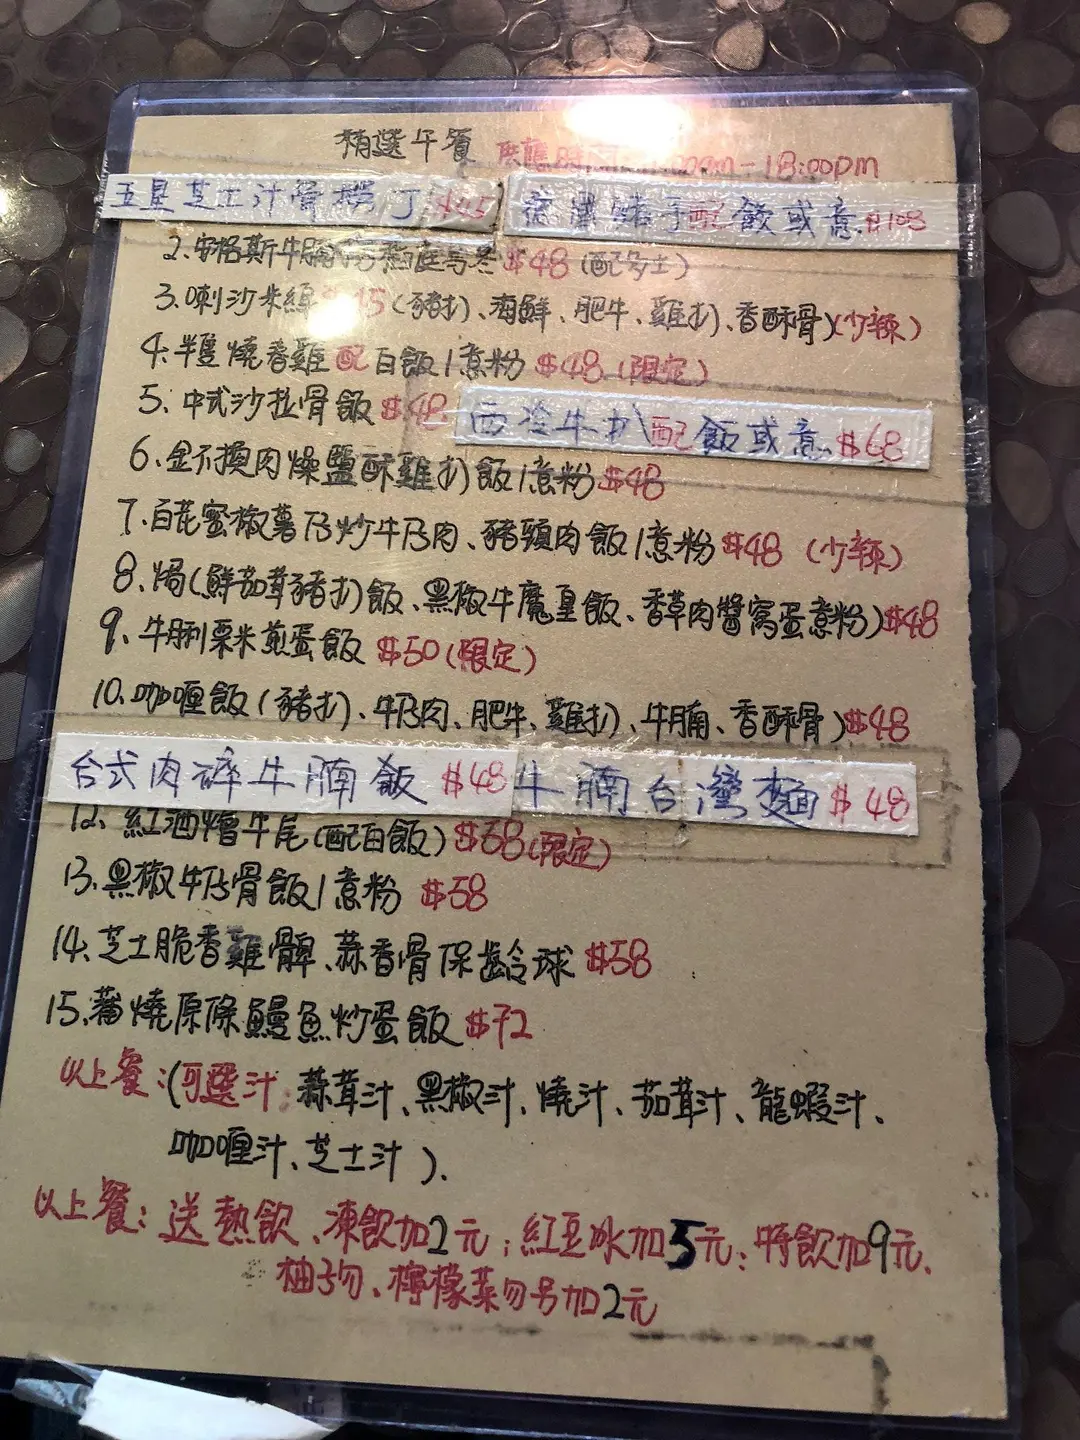 精選午餐 供應時 00am-18:00pm
五星芝士汁骨 丁 $45
德 豬手配飯或意 $108
2.安格斯牛腩 烏冬 $48 (配多士)
3.喇沙米線 $45 (豬扒)、海鮮、肥牛、雞扒、香酥骨)(少辣)
4.半隻燒春雞配白飯/意粉 $48 (限定)
5.中式沙拉骨飯 $48
西冷牛扒配飯或意 $68
6.金不換肉燥鹽酥雞扒飯/意粉 $48
7.百花蜜椒薯仔炒牛仔肉、豬頸肉飯/意粉 $48 (少辣)
8.焗(鮮茄茸豬扒)飯、黑椒牛魔皇飯、香草肉醬窩蛋意粉) $48
9.牛脷粟米煎蛋飯 $50 (限定)
10.咖喱飯(豬扒)、牛仔肉、肥牛、雞扒、牛腩、香酥骨) $48
台式肉碎牛腩飯 $48
牛腩台灣麵 $48
12.紅酒燴牛尾(配白飯) $58 (限定)
13.黑椒牛仔骨飯/意粉 $58
14.芝士脆香雞髀、蒜香骨保齡球 $58
15.蒲燒原條鰻魚炒蛋飯 $72
以上餐:(可選汁:蒜茸汁、黑椒汁、燒汁、茄茸汁、龍蝦汁、
咖喱汁、芝士汁).
以上餐:送熱飲、凍飲加2元;紅豆冰加5元;特飲加9元.
柚子勿、檸檬菜勿另加2元